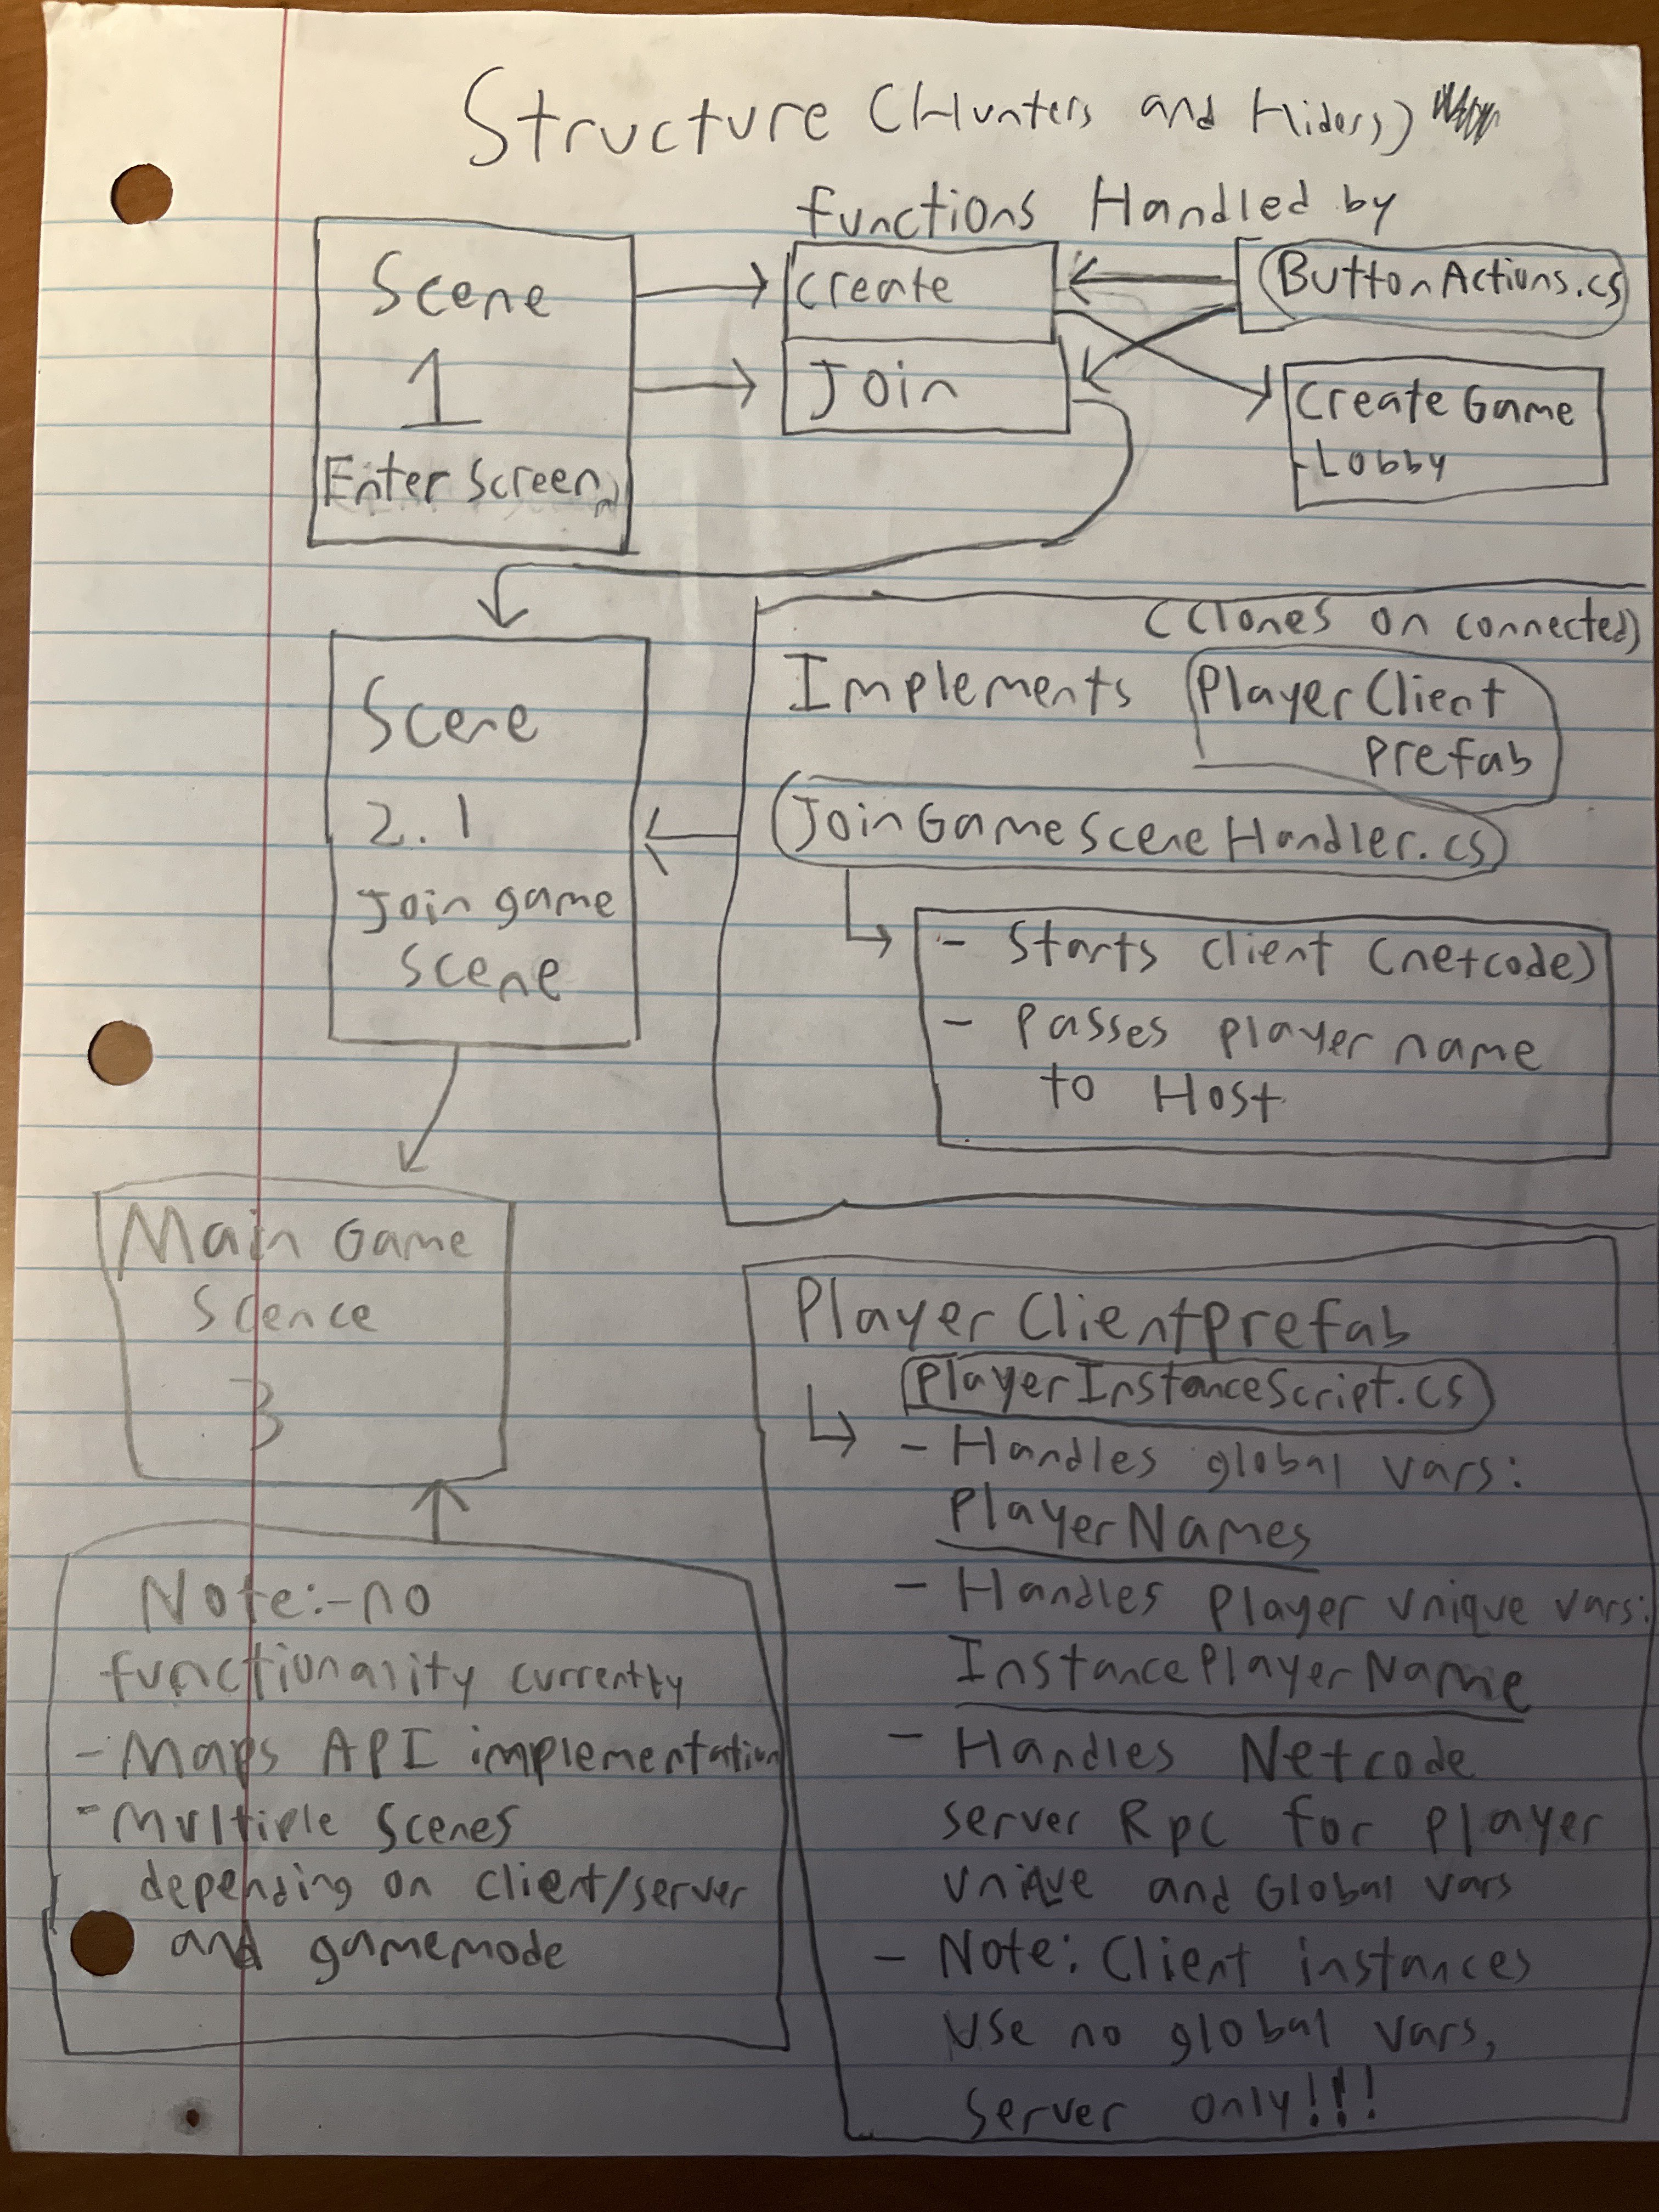 Structure (Hunters and Hiders)
functions Handled by
Scene
1
Enter Screen
create
Join
(ButtonActions.cs)
Create Game
-Lobby
(Clones on connected)
Implements PlayerClient
Prefab
JoinGameSceneHandler.cs
- Starts client (netcode)
- Passes player name
to Host
Scene
2.1
Join game
scene
Main Game
Scence
3
Note:-no
functionality currently
- Maps API implementation
- Multiple Scenes
depending on client/server
and gamemode
PlayerClientPrefab
PlayerInstanceScript.cs
- Handles global vars:
PlayerNames
- Handles Player unique vars:
InstancePlayerName
- Handles Netcode
server Rpc for player
unique and Global vars
- Note: Client instances
use no global vars,
server only!!!